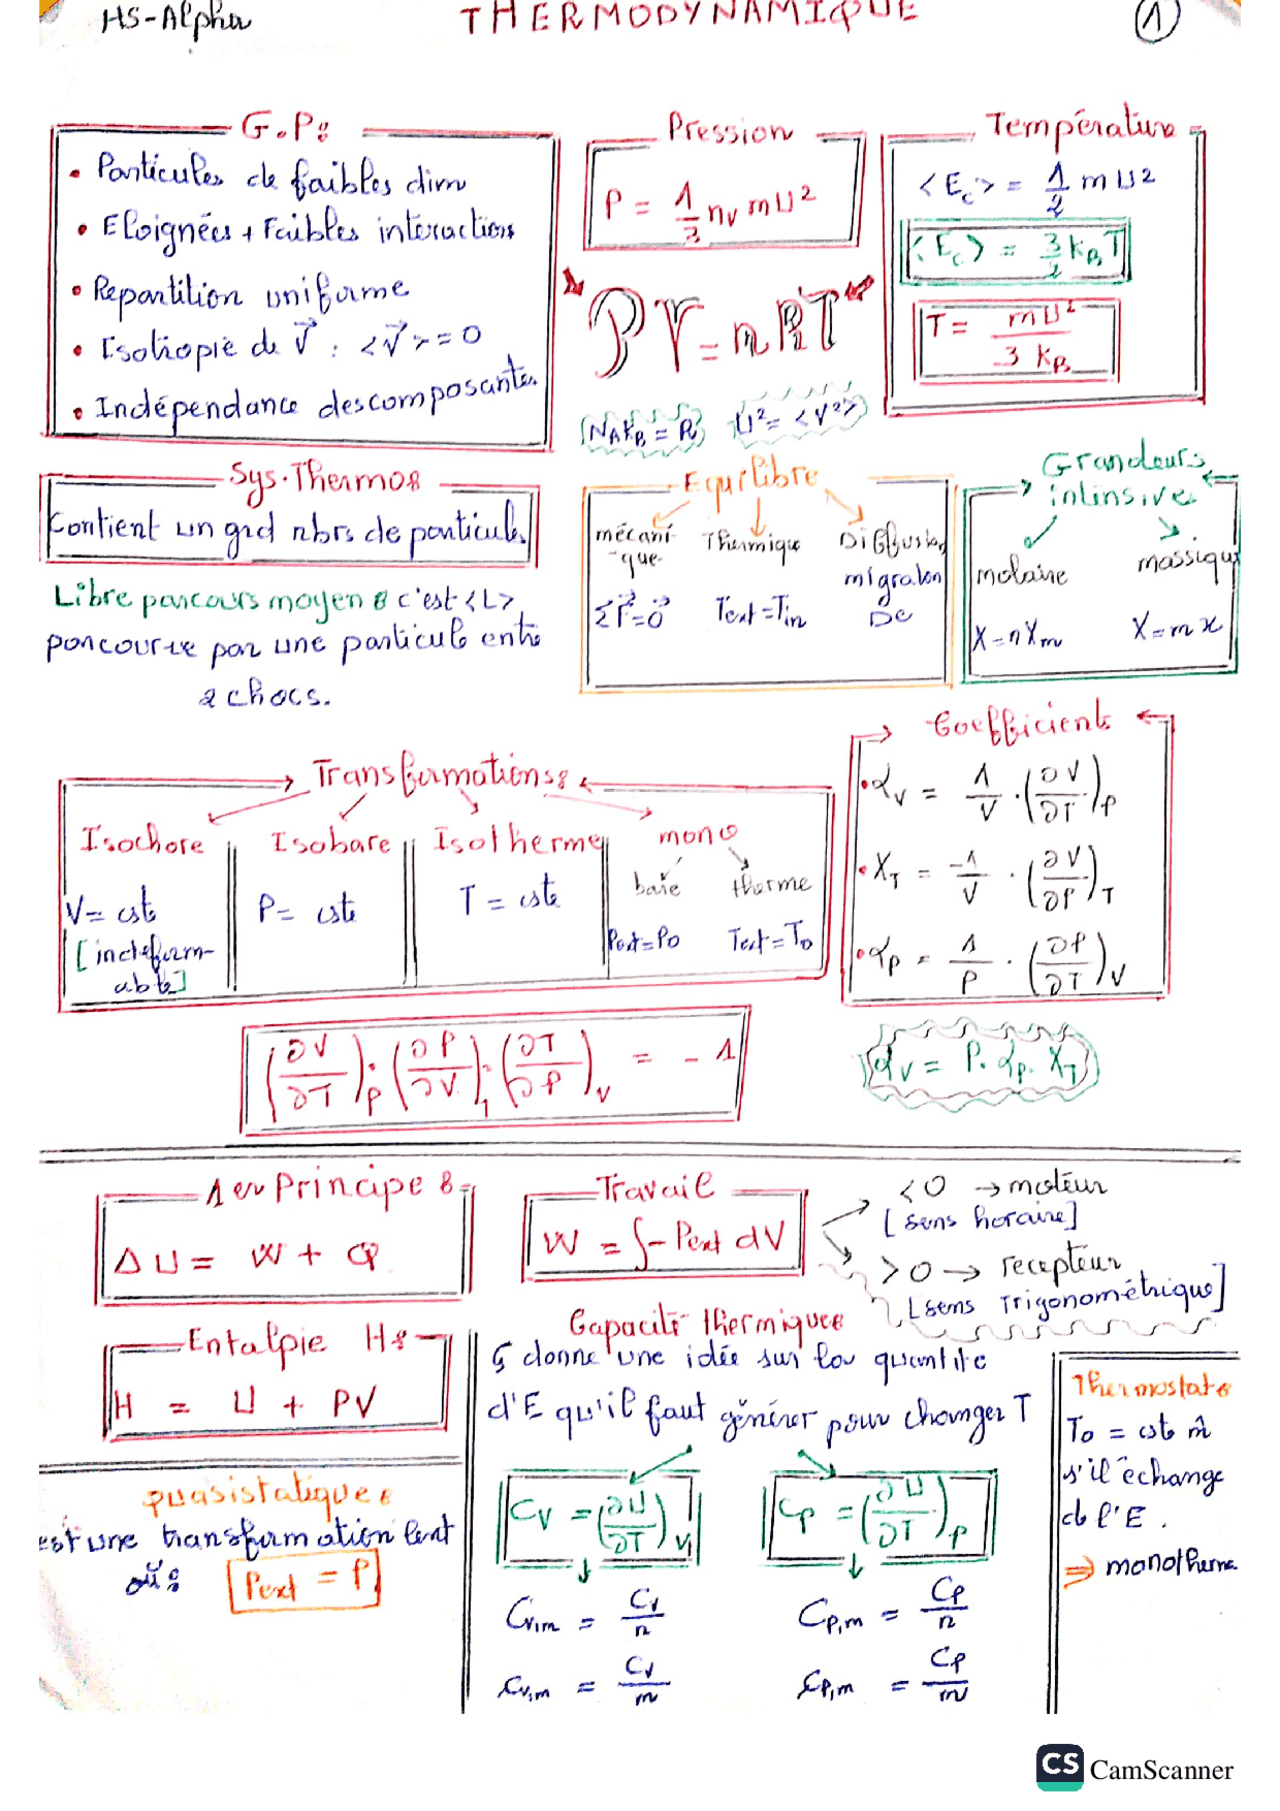 HS-Alpha
THERMODYNAMIQUE
1
G.P:
• Particules de faibles dim
• Eloignées + Faibles interactions
• Repartition uniforme
• Isotropie de V⃗ : <V⃗> = 0
• Indépendance des composantes
Pression
P = 1/3 nv m U²
PV = nRT
NA kB = R
U² = <V²>
Température
<Ec> = 1/2 m U²
<Ec> = 3/2 kB T
T = mU² / 3 kB
Sys.Thermo:
Contient un grd nbrs de particules
Libre parcours moyen : c'est <L>
parcourue par une particule entre
2 chocs.
Equilibre
mécani-que
ΣF⃗=0⃗
Thermique
Text=Tin
Diffusion
migration
De
Grandeurs
intinsives
molaire
X=nXm
massique
X=mx
Transformations:
Isochore
V= cste
[indeform-
able]
Isobare
P= cste
Isotherme
T = cste
mono
bare
Pext=P0
therme
Text=T0
Coefficients
• αV = 1/V · (∂V/∂T)P
• XT = -1/V · (∂V/∂P)T
• αP = 1/P · (∂P/∂T)V
(∂V/∂T)P · (∂P/∂V)T · (∂T/∂P)V = - 1
αV = P. αP. XT
1er Principe :
ΔU = W + Q
Travail
W = ∫-Pext dV
< 0 → moteur
[sens horaire]
> 0 → recepteur
[sens Trigonométrique]
Entalpie H:
H = U + PV
Quasistatique :
est une transformation lent
où :
Pext = P
Capacité thermiques
Ç donne une idée sur la quantité
d'E qu'il faut générer pour changer T
CV = (∂U/∂T)V
CV,m = CV/n
cV,m = CV/m
CP = (∂U/∂T)P
CP,m = CP/n
cP,m = CP/m
Thermostat:
T0 = cste m̂
s'il échange
de l'E.
⇒ monotherme
CS CamScanner